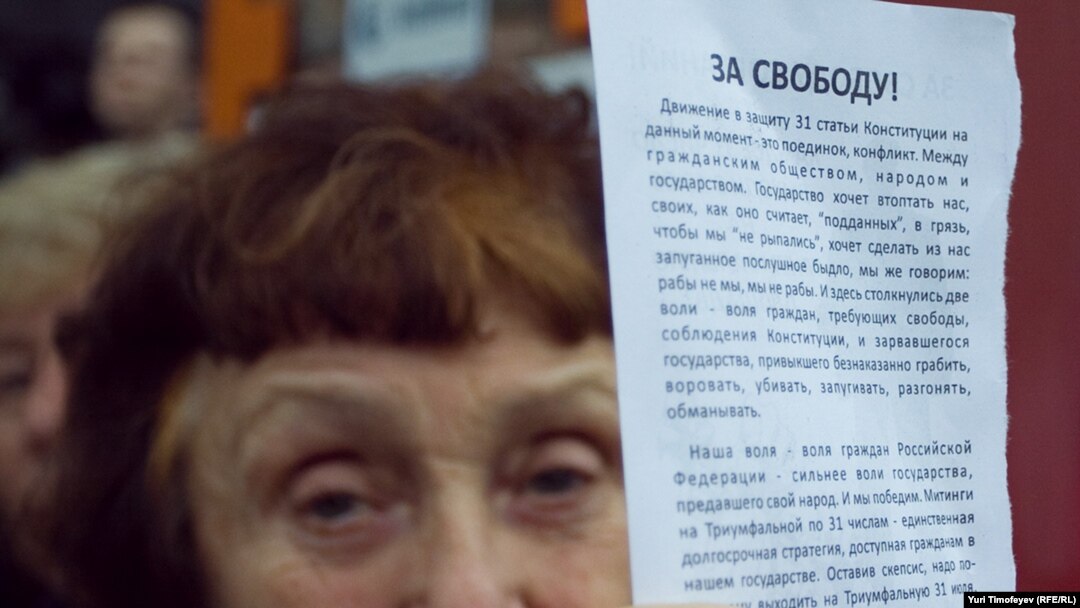 ЗА СВОБОДУ!
Движение в защиту 31 статьи Конституции на
данный момент - это поединок, конфликт. Между
гражданским обществом, народом и
государством. Государство хочет втоптать нас,
своих, как оно считает, "подданных", в грязь,
чтобы мы "не рыпались", хочет сделать из нас
запуганное послушное быдло, мы же говорим:
рабы не мы, мы не рабы. И здесь столкнулись две
воли - воля граждан, требующих свободы,
соблюдения Конституции, и зарвавшегося
государства, привыкшего безнаказанно грабить,
воровать, убивать, запугивать, разгонять,
обманывать.
Наша воля - воля граждан Российской
Федерации - сильнее воли государства,
предавшего свой народ. И мы победим. Митинги
на Триумфальной по 31 числам - единственная
долгосрочная стратегия, доступная гражданам в
нашем государстве. Оставив скепсис, надо по-
выходить на Триумфальную 31 июля,
Yuri Timofeyev (RFE/RL)